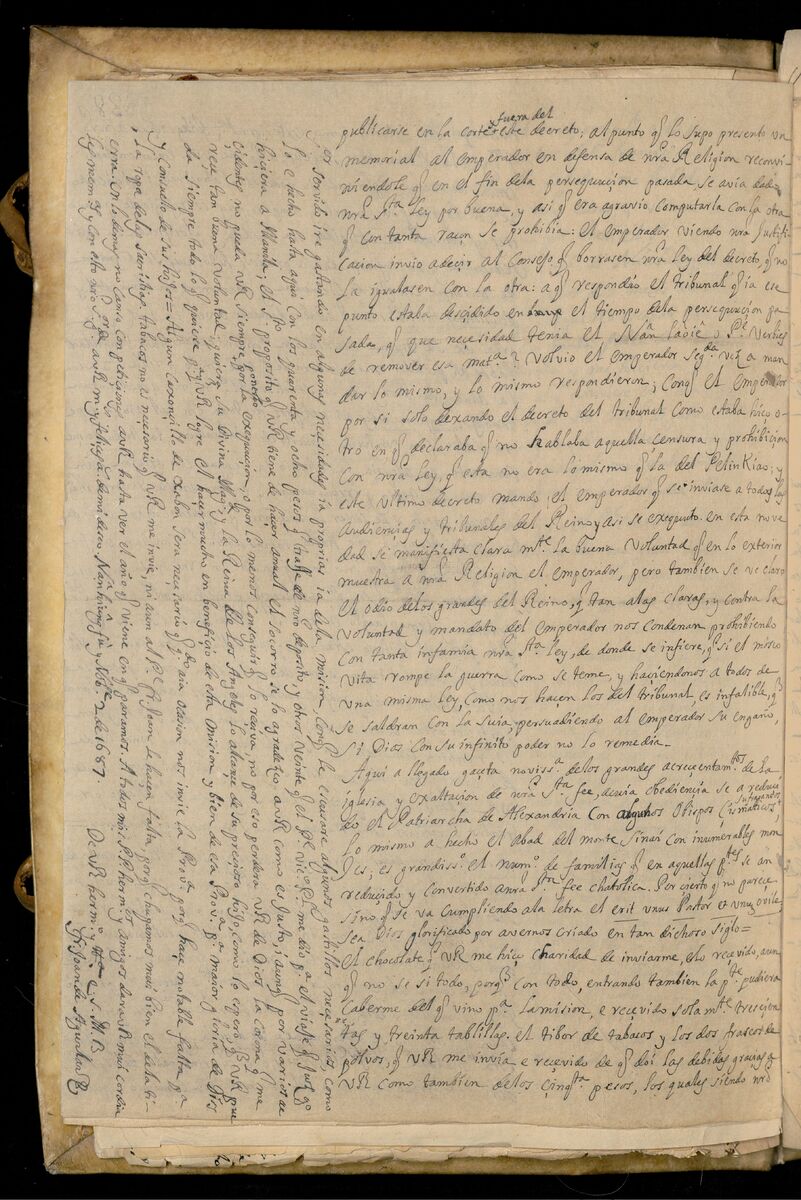 fuera del
publicarse en la corte este decreto; al punto q̃ lo supo presentó un
memorial al emperador en defensa de nrã Religion reconvi
niendole q̃ en el fin dela persequucion pasada se avia dado
nrã S.ta Ley por buena, y asi q̃ era agravio computarla con la otra
q̃ con tanta raçon se prohibia: el emperador viendo nrã Justifi
cacion invio a deçir al Consejo q̃ borrasen nrã Ley del decreto, q̃ no
la igualasen con la otra: a q̃ respondio el tribunal q̃ ia ese
punto estaba desçidido en el tiempo dela persequucion pa
sada, q̃ que necesidad tenia el P.e Verbiest
de remover esa mat.a? Volvió el emperador seg.da vez a man
dar lo mismo, y lo mismo respondieron; Conq̃ el emperador
por si solo dexando el decreto del tribunal como estaba hiço o-
tro en q̃ declaraba q̃ no hablaba aquella censura y prohibicion
con nrã Ley, q̃ esta no era lo mismo q̃ la del Pelinkiao; y
este ultimo decreto mando el emperador q̃ se inviase a todas las
audiencias y tribunales del Reino y asi se exequuto. en esta nove
dad se manifiesta clara m.te la buena voluntad q̃ en lo exterior
muestra a nrã Religion el emperador, pero tambien se ve claro
el odio delos grandes del Reino, q̃ tan alas claras, y contra la
voluntad y mandato del emperador nos condenan prohibiendo
con tanta infamia nrã S.ta Ley, de donde se infiere, q̃ si el
rompe la guerra como se teme, y haçiendonos a todos de
una misma Ley, como nos haçen los del tribunal, es infalible, q̃
se saldran con la suia, persuadiendo al emperador su engaño,
si Dios con su infinito poder no lo remedia.
Aqui a llegado gaçeta noviss.a delos grandes acreçentam.tos dela
iglesia y exaltacion de nrã S.ta fee, a cuia obediencia se a reduci
do el Patriarcha de Alexandria con algunos Obispos Cismaticos,
sufraganeos
lo mismo a hecho el abad del monte Sinai con inumerables mon
Jes; es grandiss.o el num.o de familias q̃ en aquellas p.tes se an
reduçido y convertido a nrã S.ta fee chatolica. Por cierto q̃ no pareçe
sino q̃ se va cumpliendo ala letra el erit vnus Pastor et vnu ovile,
sea Dios glorificado por avernos criado en tan dichoso siglo=
el chocolate q̃ VR me hiço charidad de inviarme, elo reçevido, aun
q̃ no se si todo, porq̃ con todo, entrando tambien la p.te pudiera
caberme del q̃ vino p.a la mision, e reçevido sola m.te tresçien
tas y treinta tablillas. el tibor de tabacos y los dos frascos de
polvos, q̃ VR me invia e reçevido de q̃ doi las debidas graçias a
VR como tambien delos çinq.ta pesos, los quales siendo nrõ
Sor servido ire gastando en algunas necesidades ia proprias ia dela mision, conq̃ se escusare algunos gastillos neçesarios como
lo e hecho hasta aqui con los quarenta y ocho pesos q̃ traxe de mio deposito y otros veinte q̃ el P.e me dio p.a el viaje
hiçiera a Manila; el proposito q̃ VR tiene de haçer anual el socorro se lo agradezco a VR como es Justo, i aunq̃ por varios ac
cidentes no pueda VR siempre ponerlo por la exequucion, o por lo menos conseguir q̃ lo reçiva, no por eso perdera VR de Dios la corona q̃ me
reçe tan buena voluntad, quiera su Divina Mag.d y la Reina de los Angeles lo alcance de su preçioso hijo como lo espero q̃ VR pue
da siempre todo lo q̃ quiere p.a q̃ VR logre el haçer mucho en benefiçio de esta mision y bien de esa Prov.a p.a maior gloria de Dios
y consuelo de sus hijos= Algun caxonçillo de xabon sera neçesario q̃ q.do aia ocasion nos invie la Prov.a porq̃ haçe notable falta p.a
la ropa dela sacristia. tabacos no es neçesario q̃ VR me invie, ni aun al P.e f. Joan le haçen falta, porq̃ chupamos mui bien el dela ti-
erra. en lo demas no canso con petiçiones a VR hasta ver el año q̃ viene en q̃ paramos. A todos mis PP. herm.s y amigos dara VR mis cordia
les mem.as y con esto nrõ S.or g. a VR m.s y feliçes a.s como deseo Nanhiung fu y Nov.e 2 de 1687
De VR herm.o y s. q. s. M. B
fr Joan de